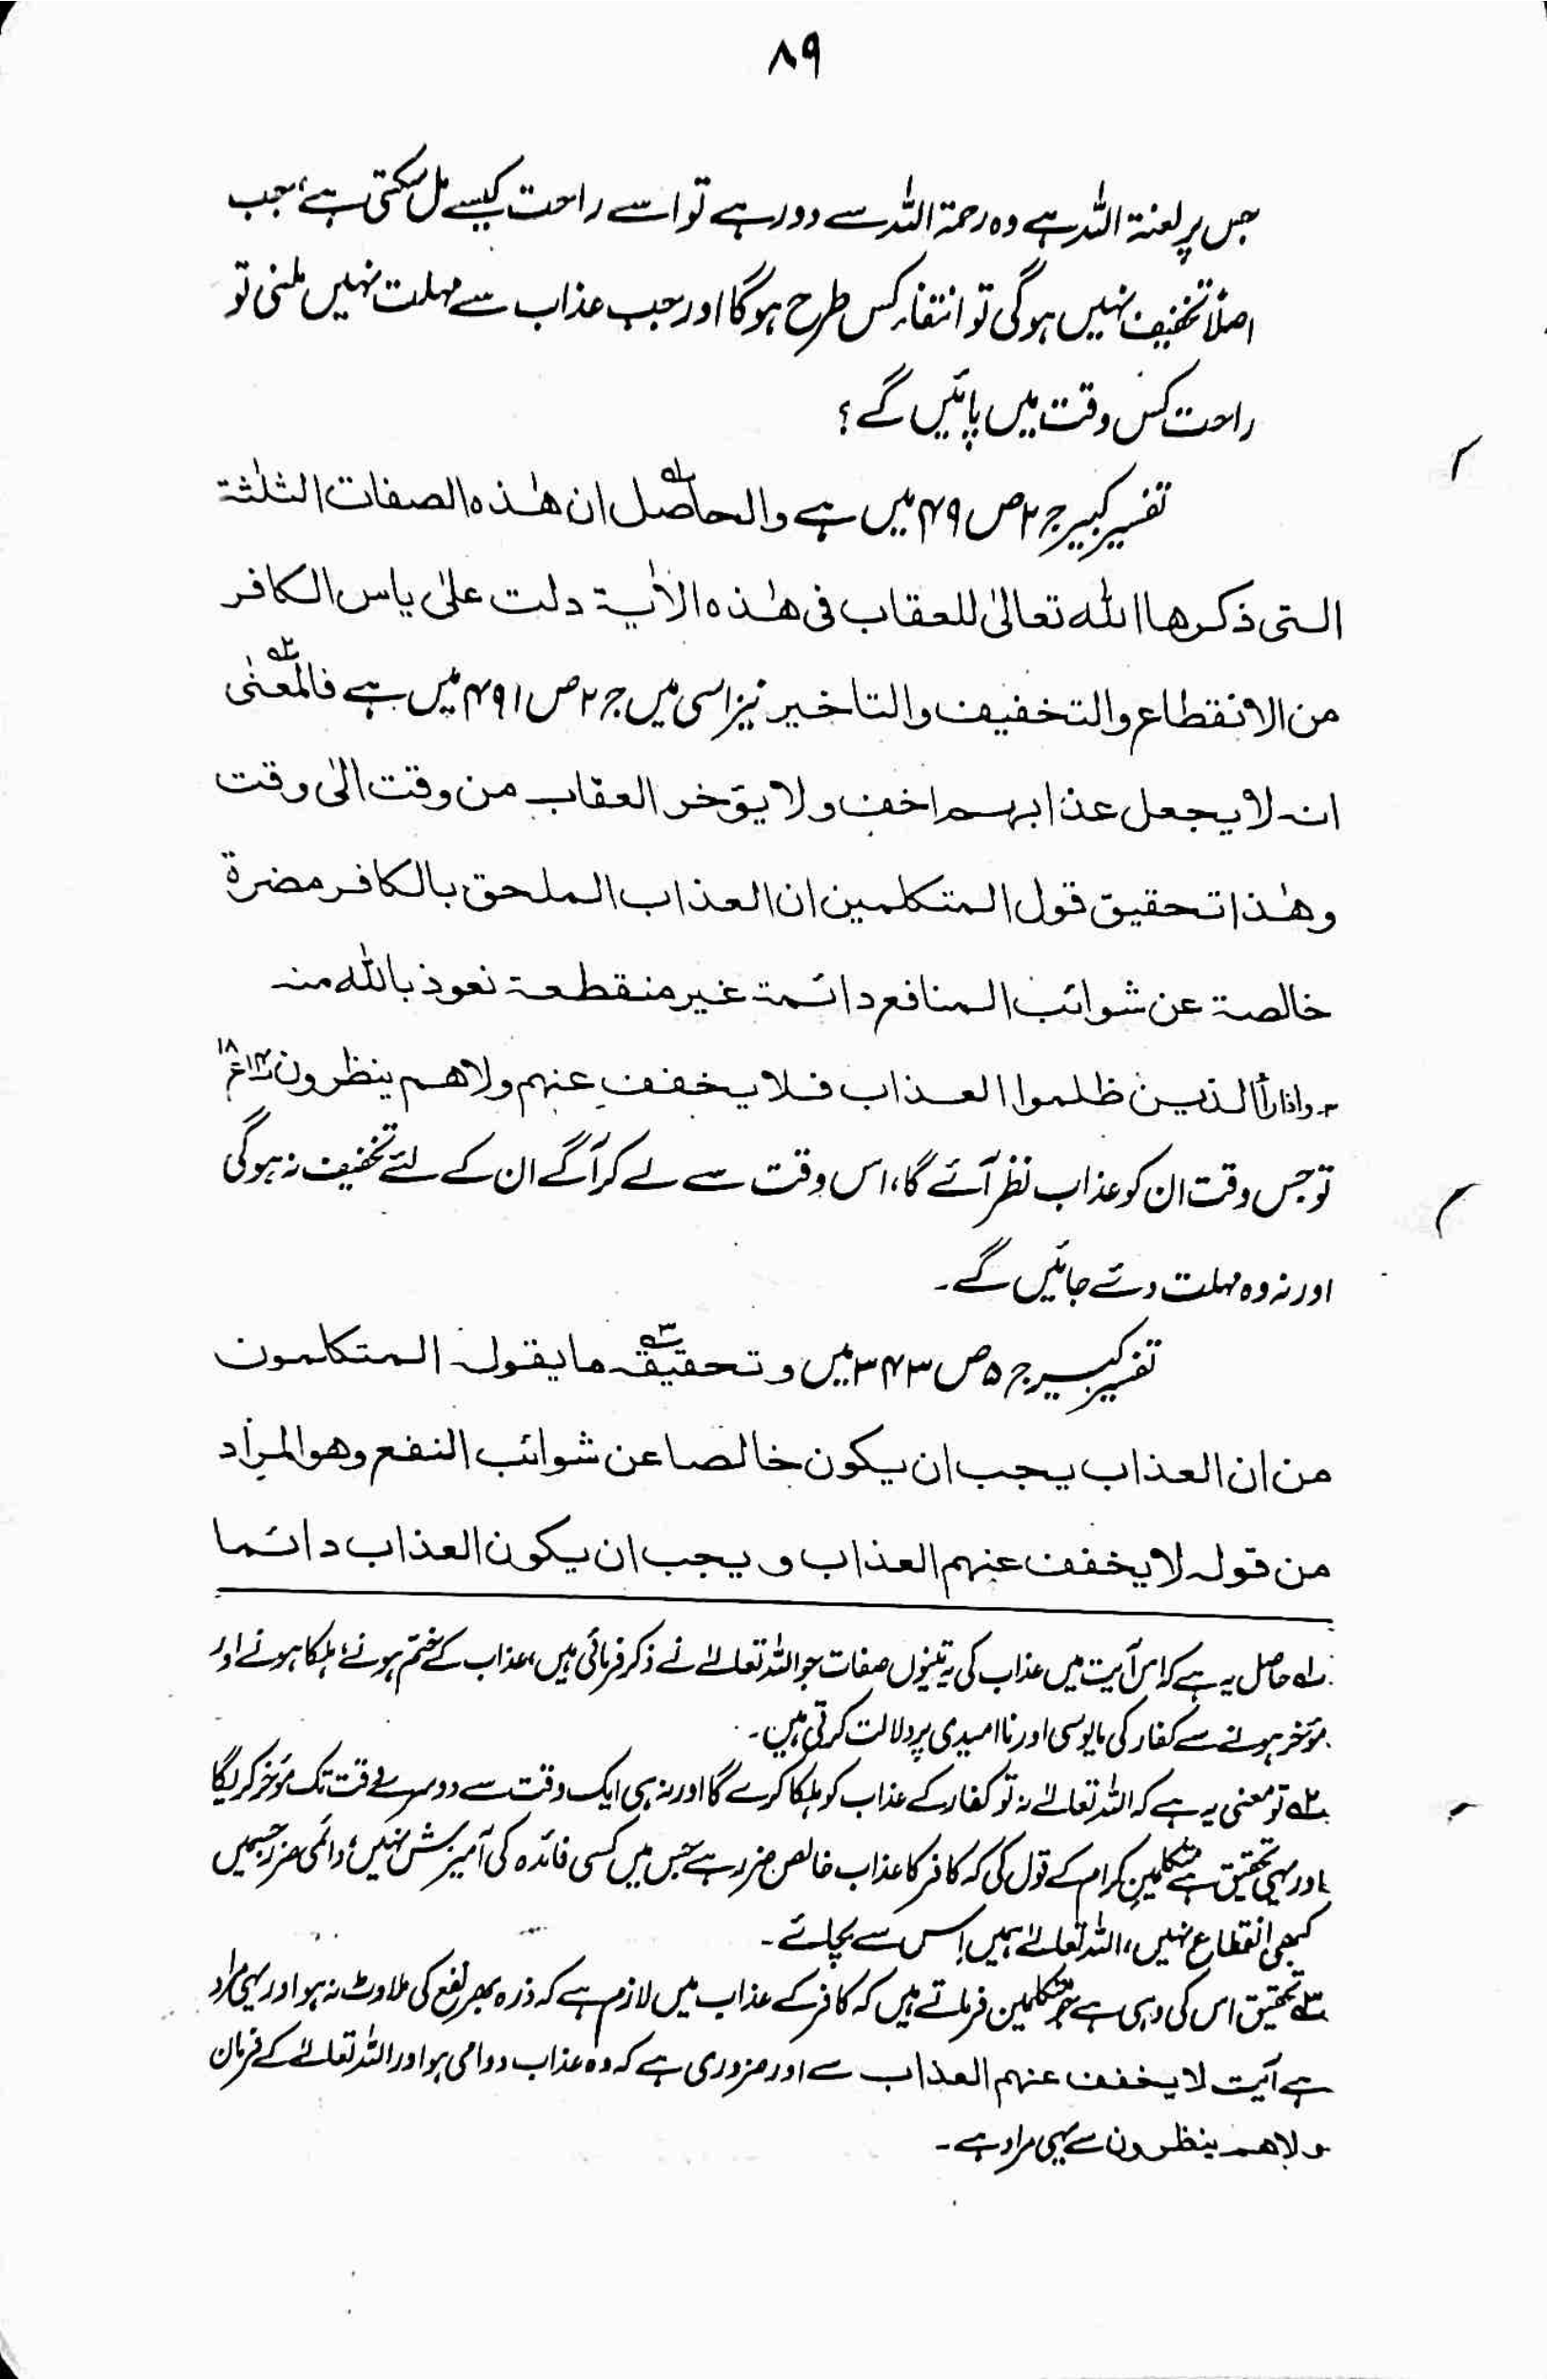 ۸۹
جس پر لعنۃ اللہ ہے وہ رحمۃ اللہ سے دور ہے تو اسے راحت کیسے مل سکتی ہے، جب
اصلاً تخفیف نہیں ہوگی تو انتفاء کس طرح ہوگا اور جب عذاب سے مہلت نہیں ملنی تو
راحت کس وقت میں پائیں گے؟
تفسیر کبیر ج ۲ ص ۴۹ میں ہے والحاصل ۱ ان ھٰذہ الصفات الثلٰثۃ
التی ذکرھا اللہ تعالیٰ للعقاب فی ھٰذہ الاٰیۃ دلت علیٰ یاس الکافر
من الانقطاع والتخفیف والتاخیر نیز اسی میں ج ۲ ص ۴۹۱ میں ہے فالمعنٰی ۲
انہ لا یجعل عذابہم اخف ولا یؤخر العقاب من وقت الیٰ وقت
وھٰذا تحقیق قول المتکلمین ان العذاب الملحق بالکافر مضرۃ
خالصۃ عن شوائب المنافع دائمۃ غیر منقطعۃ نعوذ باللہ منہ
۳۔ واذا رأ الذین ظلموا العذاب فلا یخفف عنہم ولا ھم ینظرون پ۱۴ ع۱۸
تو جس وقت ان کو عذاب نظر آئے گا، اس وقت سے لے کر آگے ان کے لئے تخفیف نہ ہوگی
اور نہ وہ مہلت دئے جائیں گے۔
تفسیر کبیر ج ۵ ص ۳۴۳ میں وتحقیقہ ۳ ما یقولہ المتکلمون
من ان العذاب یجب ان یکون خالصا عن شوائب النفع وھو المراد
من قولہ لا یخفف عنہم العذاب ویجب ان یکون العذاب دائما
۱ حاصل یہ ہے کہ اس آیت میں عذاب کی یہ تینوں صفات جو اللہ تعالےٰ نے ذکر فرمائی ہیں، عذاب کے ختم ہونے، ہلکا ہونے اور
مؤخر ہونے سے کفار کی مایوسی اور ناامیدی پر دلالت کرتی ہیں۔
۲ تو معنی یہ ہے کہ اللہ تعالےٰ نہ تو کفار کے عذاب کو ہلکا کرے گا اور نہ ہی ایک وقت سے دوسرے وقت تک مؤخر کریگا
اور یہی تحقیق ہے متکلمینِ کرام کے قول کی کہ کافر کا عذاب خالص ضرر ہے جس میں کسی فائدہ کی آمیزش نہیں، دائمی ضرر جسمیں
کبھی انقطاع نہیں، اللہ تعالےٰ ہمیں اِس سے بچائے۔
۳ تحقیق اس کی وہی ہے جو متکلمین فرماتے ہیں کہ کافر کے عذاب میں لازم ہے کہ ذرہ بھر نفع کی ملاوٹ نہ ہو اور یہی مراد
ہے آیت لا یخفف عنہم العذاب سے اور ضروری ہے کہ وہ عذاب دوامی ہو اور اللہ تعالےٰ کے فرمان
ولا ھم ینظرون سے یہی مراد ہے۔